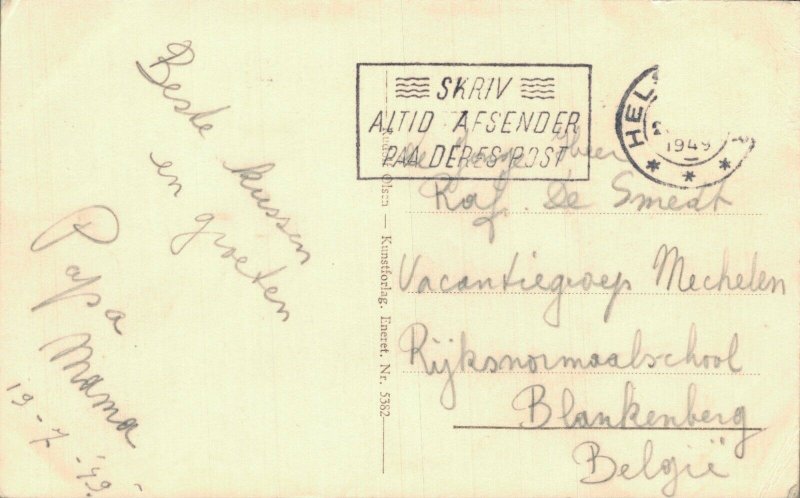 Beste kussen
en groeten
Papa
Mama
19-7-'49.
SKRIV
ALTID AFSENDER
PAA DERES POST
HEL
1949
Olsen — Kunstforlag. Eneret. Nr. 5382
Heer
Raf. De Smedt
Vacantiegroep Mechelen
Rijksnormaalschool
Blankenberg
België